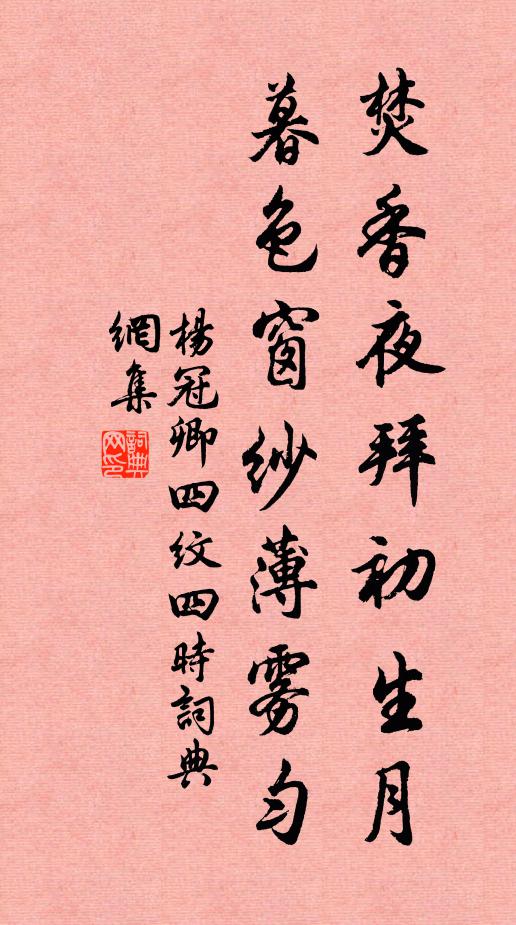 焚香夜拜初生月
暮色窗紗薄雾勻
楊冠卿四紋四時詞典
網集
詞典
网印